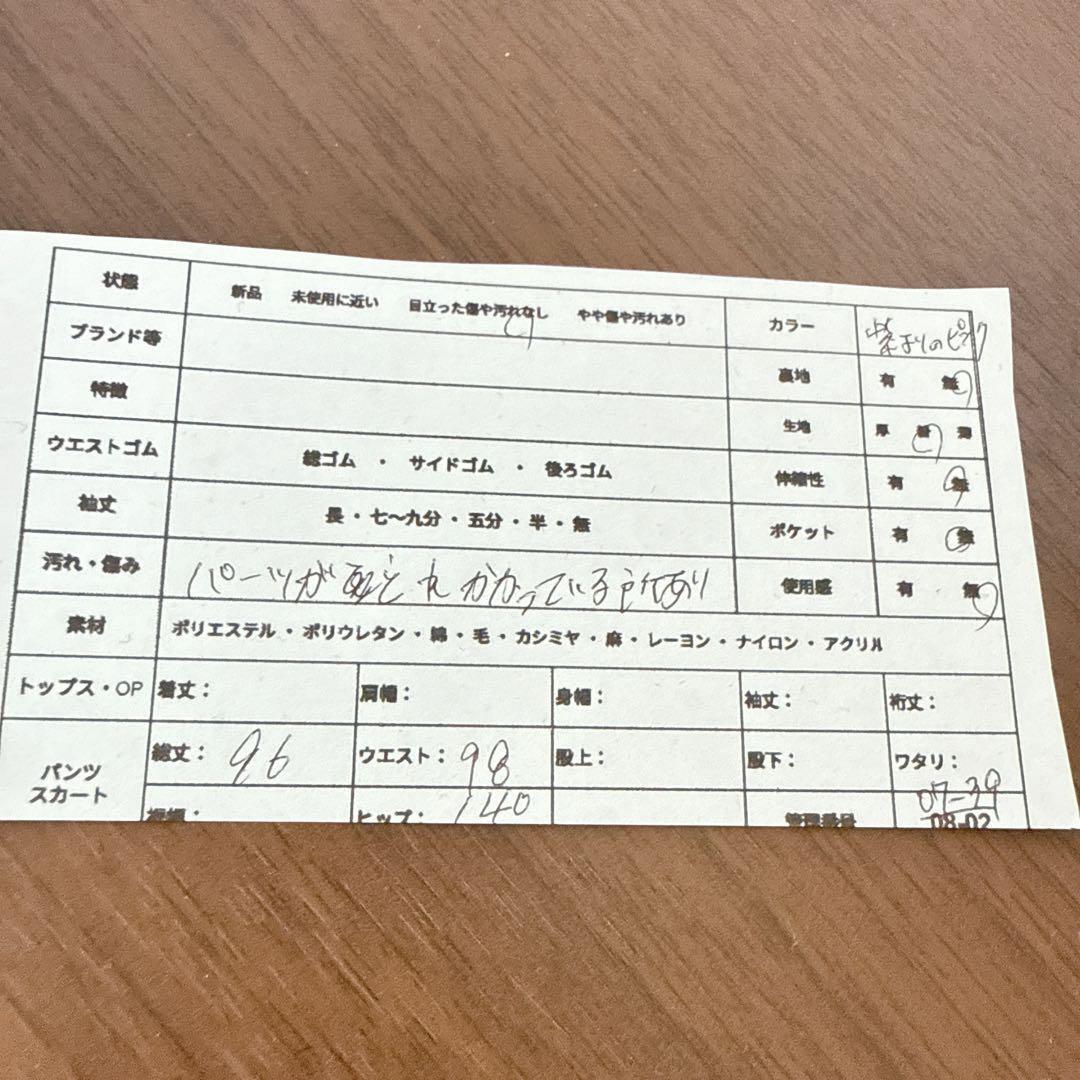 状態 新品 未使用に近い 目立った傷や汚れなし やや傷や汚れあり カラー 紫よりのピンク
ブランド等 裏地 有 無
特徴 生地 厚 普 薄
ウエストゴム 総ゴム ・ サイドゴム ・ 後ろゴム 伸縮性 有 無
袖丈 長・七〜九分・五分・半・無 ポケット 有 無
汚れ・傷み パーツが取れかかっている所あり 使用感 有 無
素材 ポリエステル・ポリウレタン・綿・毛・カシミヤ・麻・レーヨン・ナイロン・アクリル
トップス・OP 着丈： 肩幅： 身幅： 袖丈： 裄丈：
パンツ スカート 総丈： 96 ウエスト： 98 股上： 股下： ワタリ：
裾幅： ヒップ： 140 管理番号 07-39
08-02